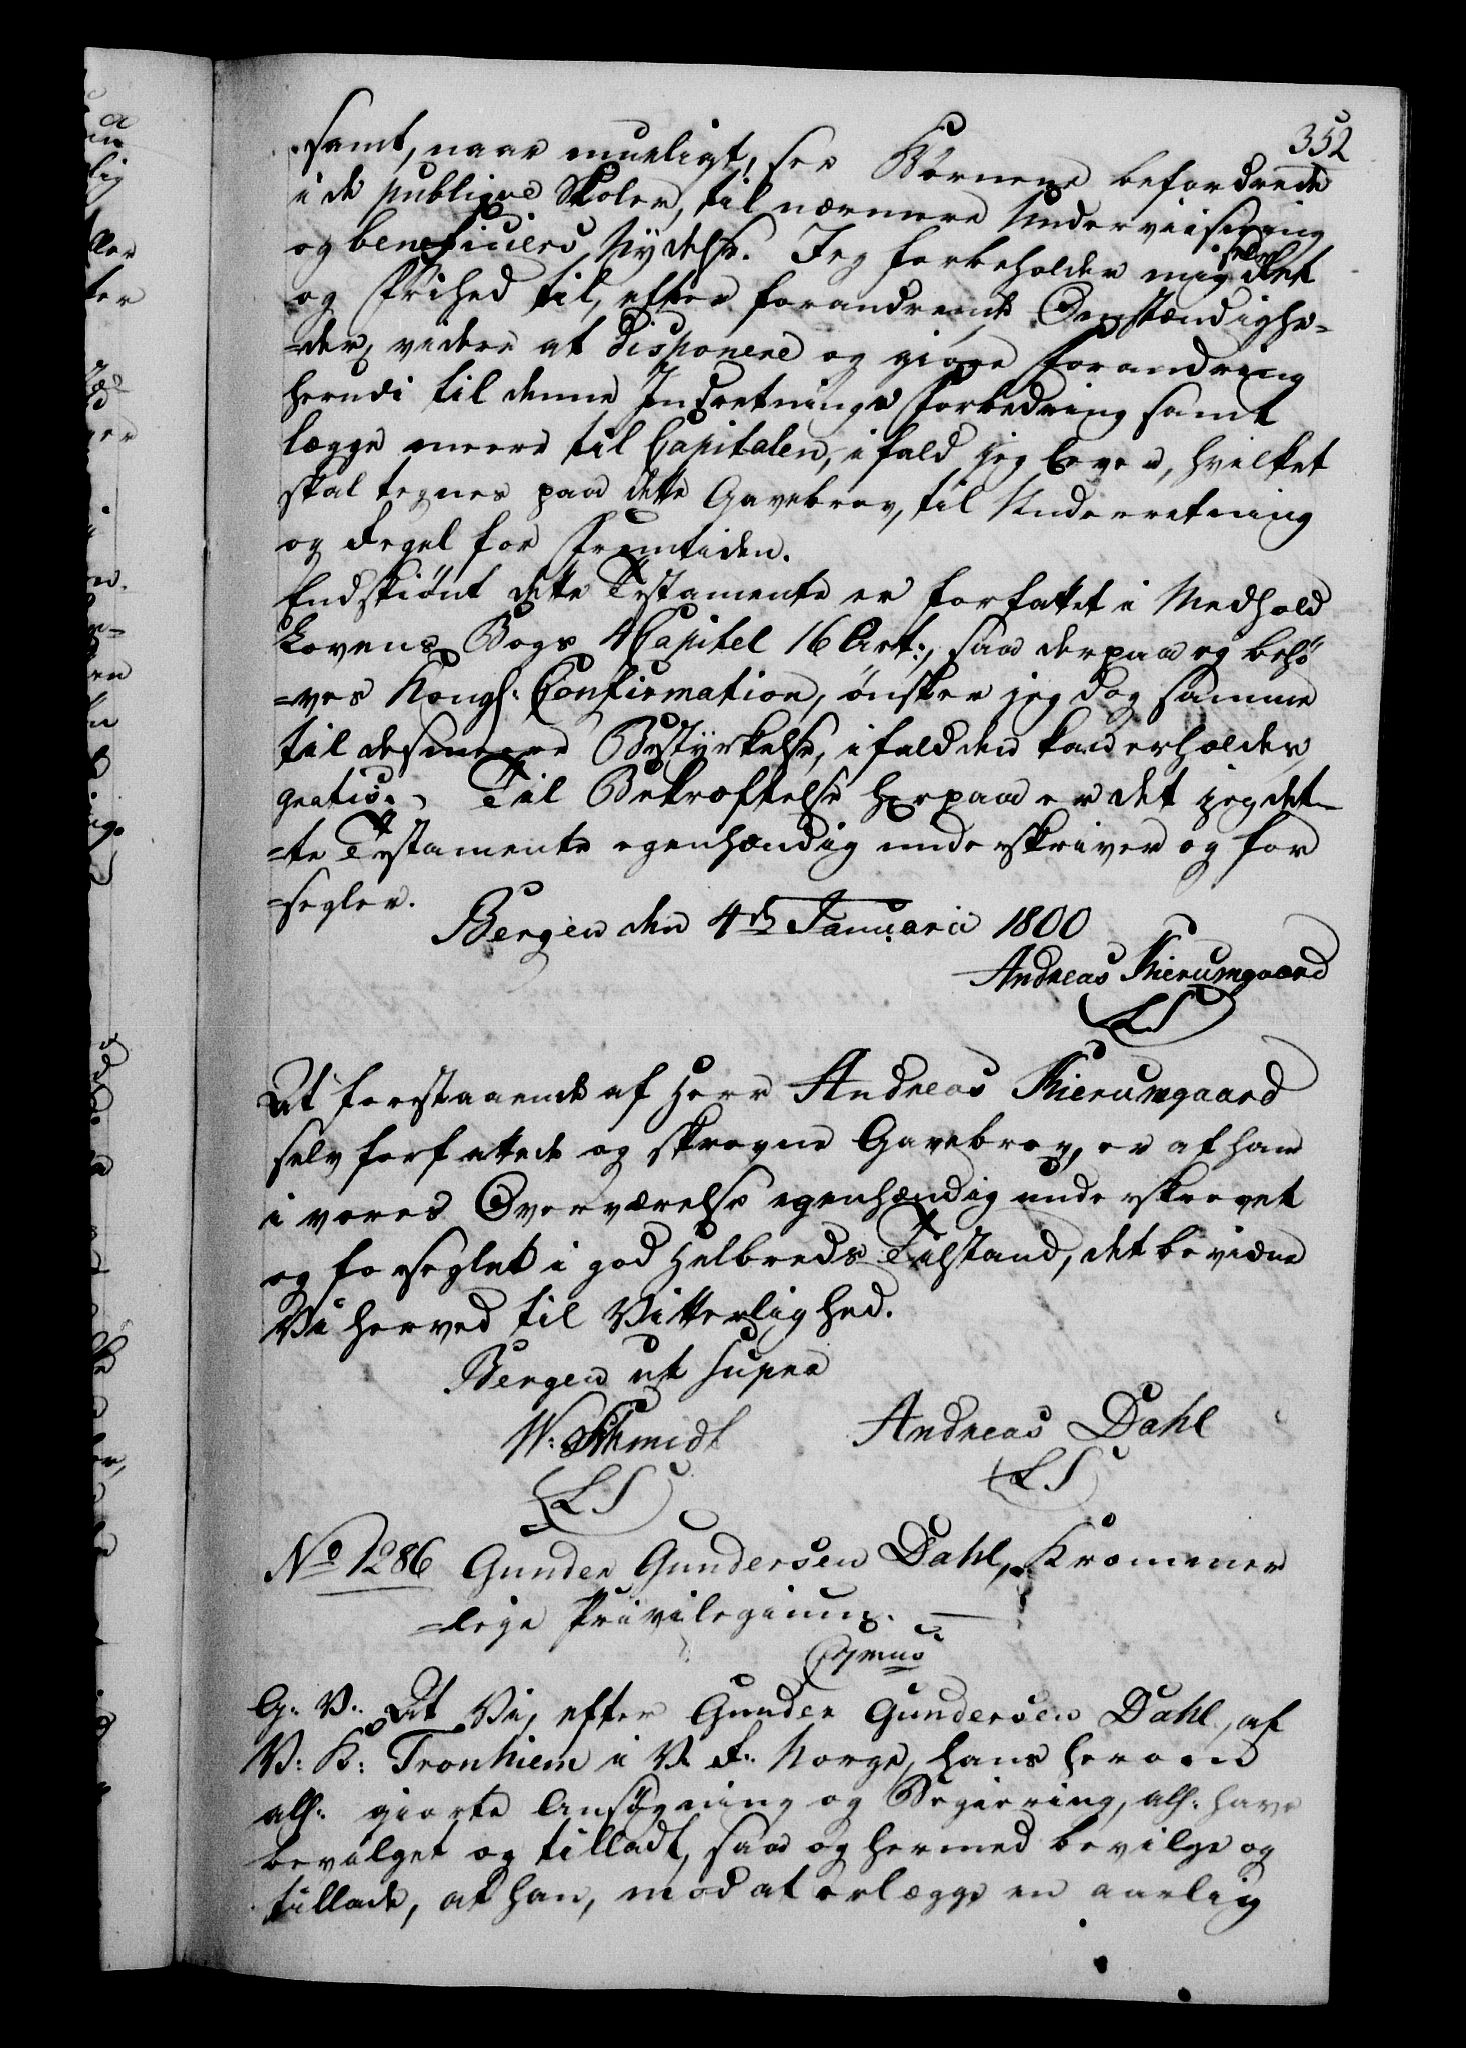 352
samt, naar mueligt, see Børnene befordrede
i de publiqve Skoler, til nærmere Underviisning
og beneficiers Nydelse. Jeg forbeholder mig selv Ret
og Frihed til, efter forandrende Omstændighe-
=der, videre at disponere og giøre Forandring
herudi til denne Indretnings Forbedring samt
lægge meere til Capitalen, ifald jeg lever, hvilket
skal tegnes paa dette Gavebrev, til Underretning
og Regel for Fremtiden.
Endskiønt dette Testamente er forfattet i Medhold
Lovens Bogs 4 Capitel 16 Art:, saa derpaa ey behø
=ves Kongl: Confirmation, ønsker jeg dog samme
til desmeere Bestyrkelse, ifald den kand erholdes
gratis. Til Bekræftelse herpaa er det jeg det-
=te Testamente egenhændig underskriver og for
=segler.
Bergen den 4de Januarii 1800
Andreas Kierumgaard
LS
At forestaaende af Herr Andreas Kierumgaard
selv forfattede og skrevne Gavebrev, er af ham
i vores Overværelse egenhændig underskrevet
og forseglet i god Helbreds Tilstand, det bevidne
Vi herved til Vitterlighed.
Bergen ut supra
W: Schmidt Andreas Dahl
LS LS
No 1286 Gunder Gundersen Dahl, Kræmmer
=leje Privilegium.
G: V: At Vi, efter Gunder Gundersen Dahl, af
V: K: Tronhiem i V: R: Norge, hans herom
all: giorte Ansøgning og Begiering, all: have
bevilget og tilladt, saa og hermed bevilge og
tillade, at han, mod at erlægge en aarlig